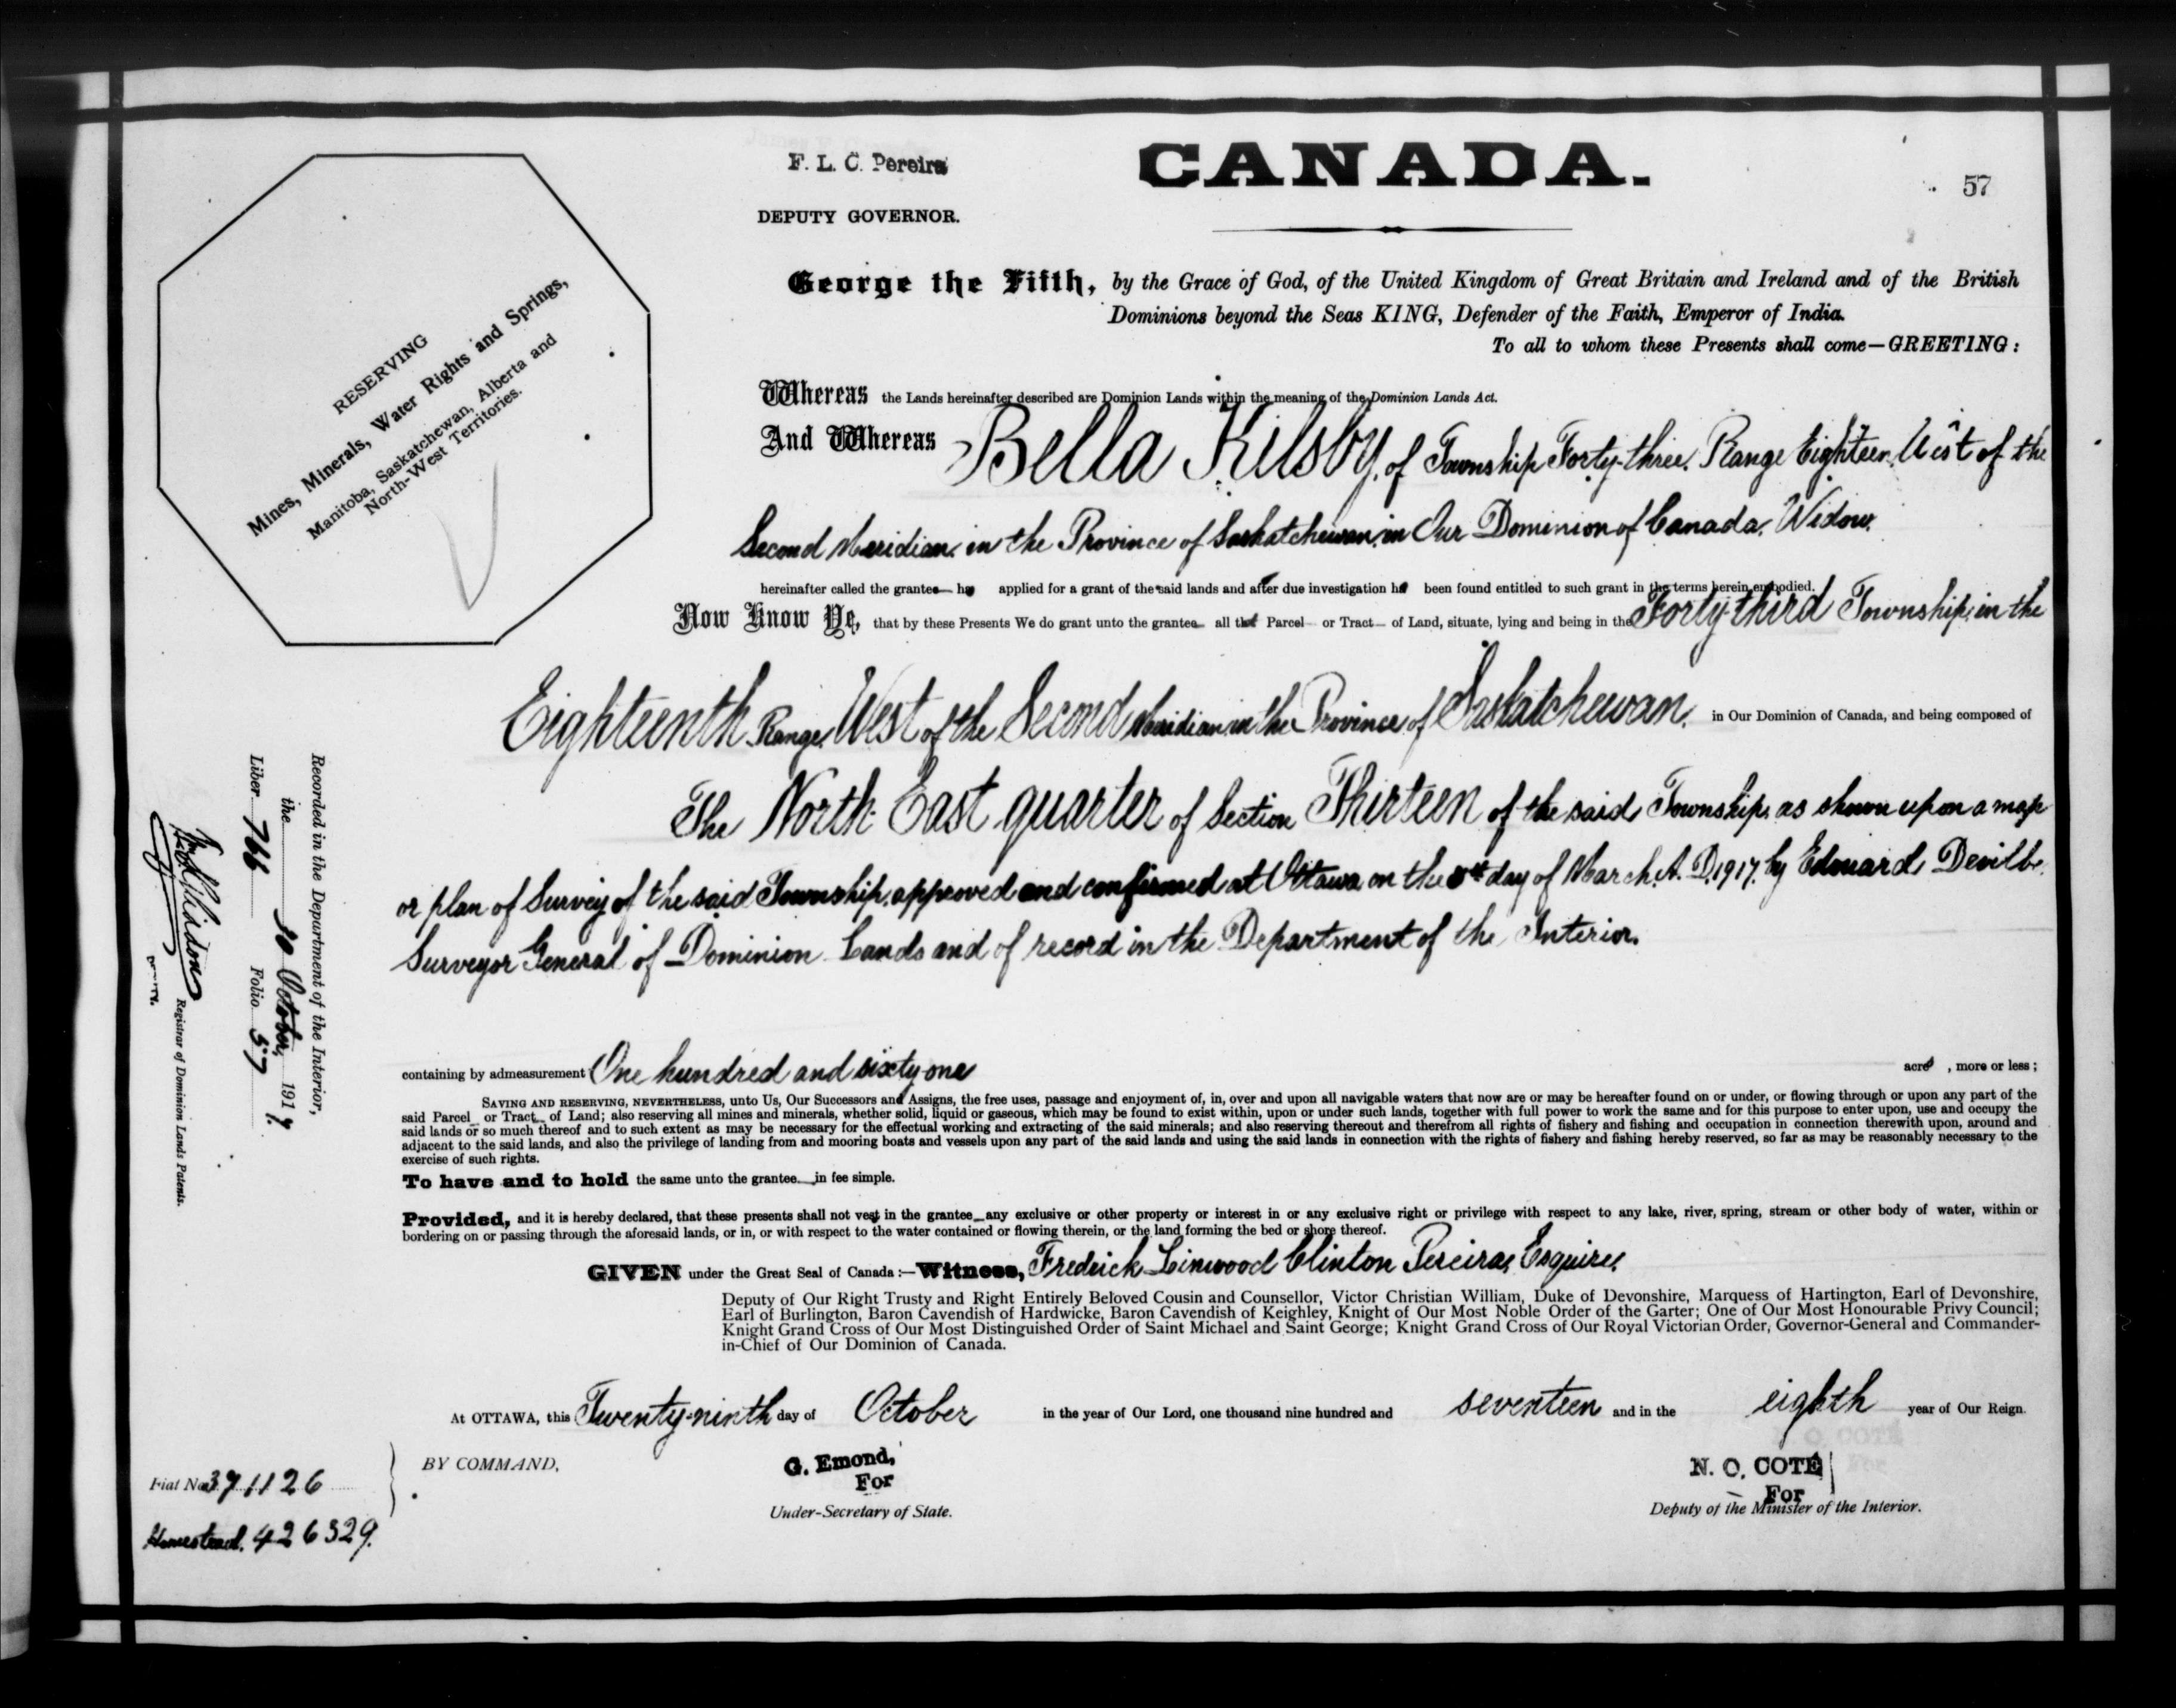 F. L. C. Pereira
DEPUTY GOVERNOR.
CANADA.
57
RESERVING
Mines, Minerals, Water Rights and Springs,
Manitoba, Saskatchewan, Alberta and
North-West Territories.
George the Fifth, by the Grace of God, of the United Kingdom of Great Britain and Ireland and of the British
Dominions beyond the Seas KING, Defender of the Faith, Emperor of India.
To all to whom these Presents shall come—GREETING:
Whereas the Lands hereinafter described are Dominion Lands within the meaning of the Dominion Lands Act.
And Whereas Bella Kilsby, of Township Forty-three, Range Eighteen, West of the
Second Meridian, in the Province of Saskatchewan, in Our Dominion of Canada, Widow,
hereinafter called the grantee has applied for a grant of the said lands and after due investigation has been found entitled to such grant in the terms herein embodied.
Now Know Ye, that by these Presents We do grant unto the grantee all that Parcel or Tract of Land, situate, lying and being in the Forty-third Township, in the
Eighteenth Range, West of the Second Meridian, in the Province of Saskatchewan, in Our Dominion of Canada, and being composed of
The North East quarter of Section Thirteen of the said Township, as shown upon a map
or plan of Survey of the said Township, approved and confirmed at Ottawa on the day of March, A. D. 1917, by Edouard Deville
Surveyor General of Dominion Lands and of record in the Department of the Interior.
containing by admeasurement One hundred and sixty-one acres, more or less;
SAVING AND RESERVING, NEVERTHELESS, unto Us, Our Successors and Assigns, the free uses, passage and enjoyment of, in, over and upon all navigable waters that now are or may be hereafter found on or under, or flowing through or upon any part of the
said Parcel or Tract of Land; also reserving all mines and minerals, whether solid, liquid or gaseous, which may be found to exist within, upon or under such lands, together with full power to work the same and for this purpose to enter upon, use and occupy the
said lands or so much thereof and to such extent as may be necessary for the effectual working and extracting of the said minerals; and also reserving thereout and therefrom all rights of fishery and fishing and occupation in connection therewith upon, around and
adjacent to the said lands, and also the privilege of landing from and mooring boats and vessels upon any part of the said lands and using the said lands in connection with the rights of fishery and fishing hereby reserved, so far as may be reasonably necessary to the
exercise of such rights.
To have and to hold the same unto the grantee in fee simple.
Provided, and it is hereby declared, that these presents shall not vest in the grantee any exclusive or other property or interest in or any exclusive right or privilege with respect to any lake, river, spring, stream or other body of water, within or
bordering on or passing through the aforesaid lands, or in, or with respect to the water contained or flowing therein, or the land forming the bed or shore thereof.
GIVEN under the Great Seal of Canada:—Witness, Fredrick Linwood Clinton Pereira, Esquire,
Deputy of Our Right Trusty and Right Entirely Beloved Cousin and Counsellor, Victor Christian William, Duke of Devonshire, Marquess of Hartington, Earl of Devonshire,
Earl of Burlington, Baron Cavendish of Hardwicke, Baron Cavendish of Keighley, Knight of Our Most Noble Order of the Garter; One of Our Most Honourable Privy Council;
Knight Grand Cross of Our Most Distinguished Order of Saint Michael and Saint George; Knight Grand Cross of Our Royal Victorian Order, Governor-General and Commander-
in-Chief of Our Dominion of Canada.
At OTTAWA, this Twenty-ninth day of October in the year of Our Lord, one thousand nine hundred and seventeen and in the eighth year of Our Reign.
BY COMMAND,
G. Emond,
For
Under-Secretary of State.
N. O. COTÉ
For
Deputy of the Minister of the Interior.
Fiat No. 391126
Homestead. 426329.
Recorded in the Department of the Interior,
the 30 October, 1917
Liber 766 Folio 57
Registrar of Dominion Lands Patents.